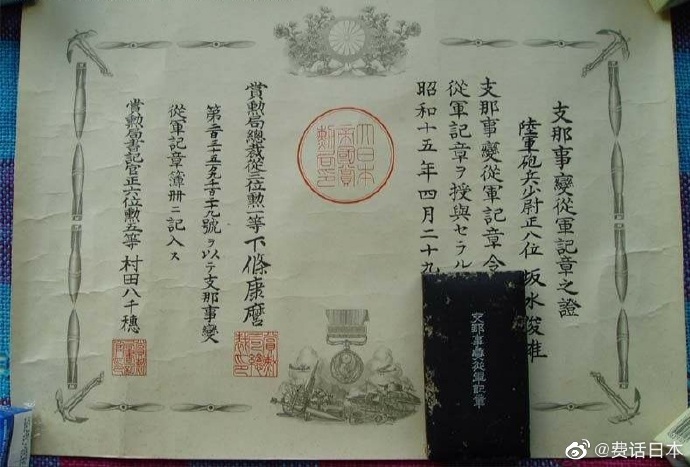 支那事變從軍記章之證
陸軍砲兵少尉正八位 坂水俊雄
支那事變從軍記章令
從軍記章ヲ授與セラル
昭和十五年四月二十九
大日本帝國賞勳局印
賞勲局總裁從三位勲一等下條康麿
號ヲ以テ支那事變
從軍記章簿册ニ記入ス
賞勲局書記官正六位勲五等村田八千穗
支那事變從軍記章
@费话日本